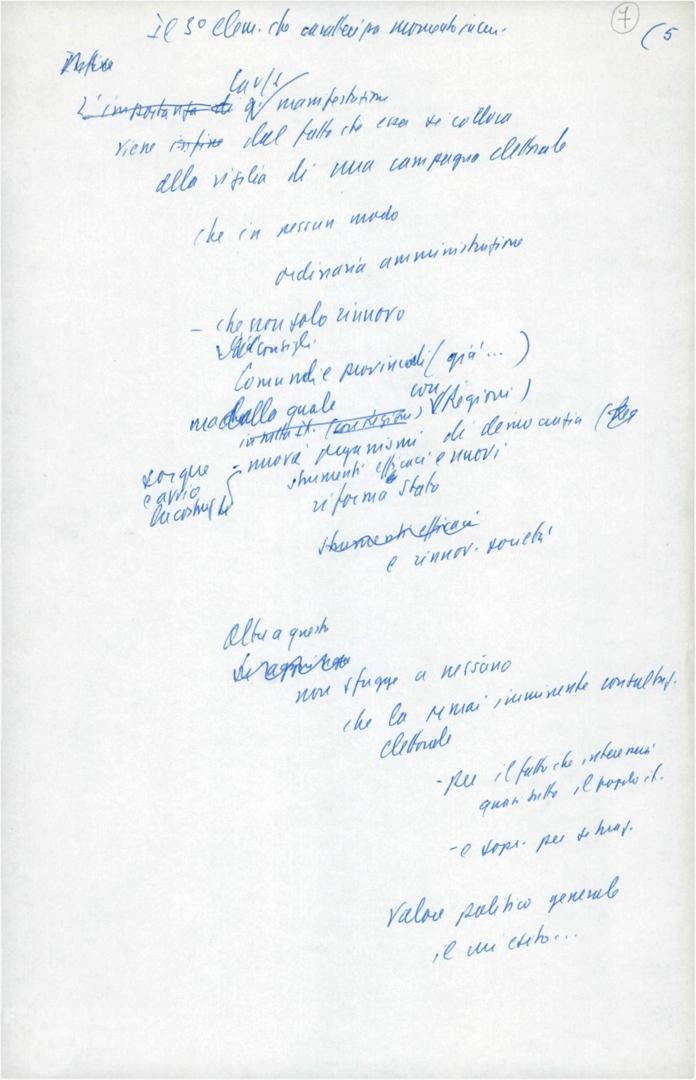 7
(5
Il 3° elem. che caratterizza momento in cui
Infine
L'importanza di q. manifestazione
viene infine dal fatto che essa si colloca
alla vigilia di una campagna elettorale
che in nessun modo
ordinaria amministrazione
- che non solo rinnovo
dei consigli
Comunali e provinciali (già ... )
ma dalla quale con
in tutta It. (con Regioni) Regioni)
sorgue - nuovi organismi di democrazia
e avvio strumenti efficaci e nuovi
riforma Stato
strumenti efficaci
e rinnov. società
Oltre a questo
non sfugge a nessuno
che la ormai imminente consultaz.
elettorale
- per il fatto che interesserà
quasi tutto il popolo it.
- e sopr. per situaz.
Valore politico generale
il cui esito...